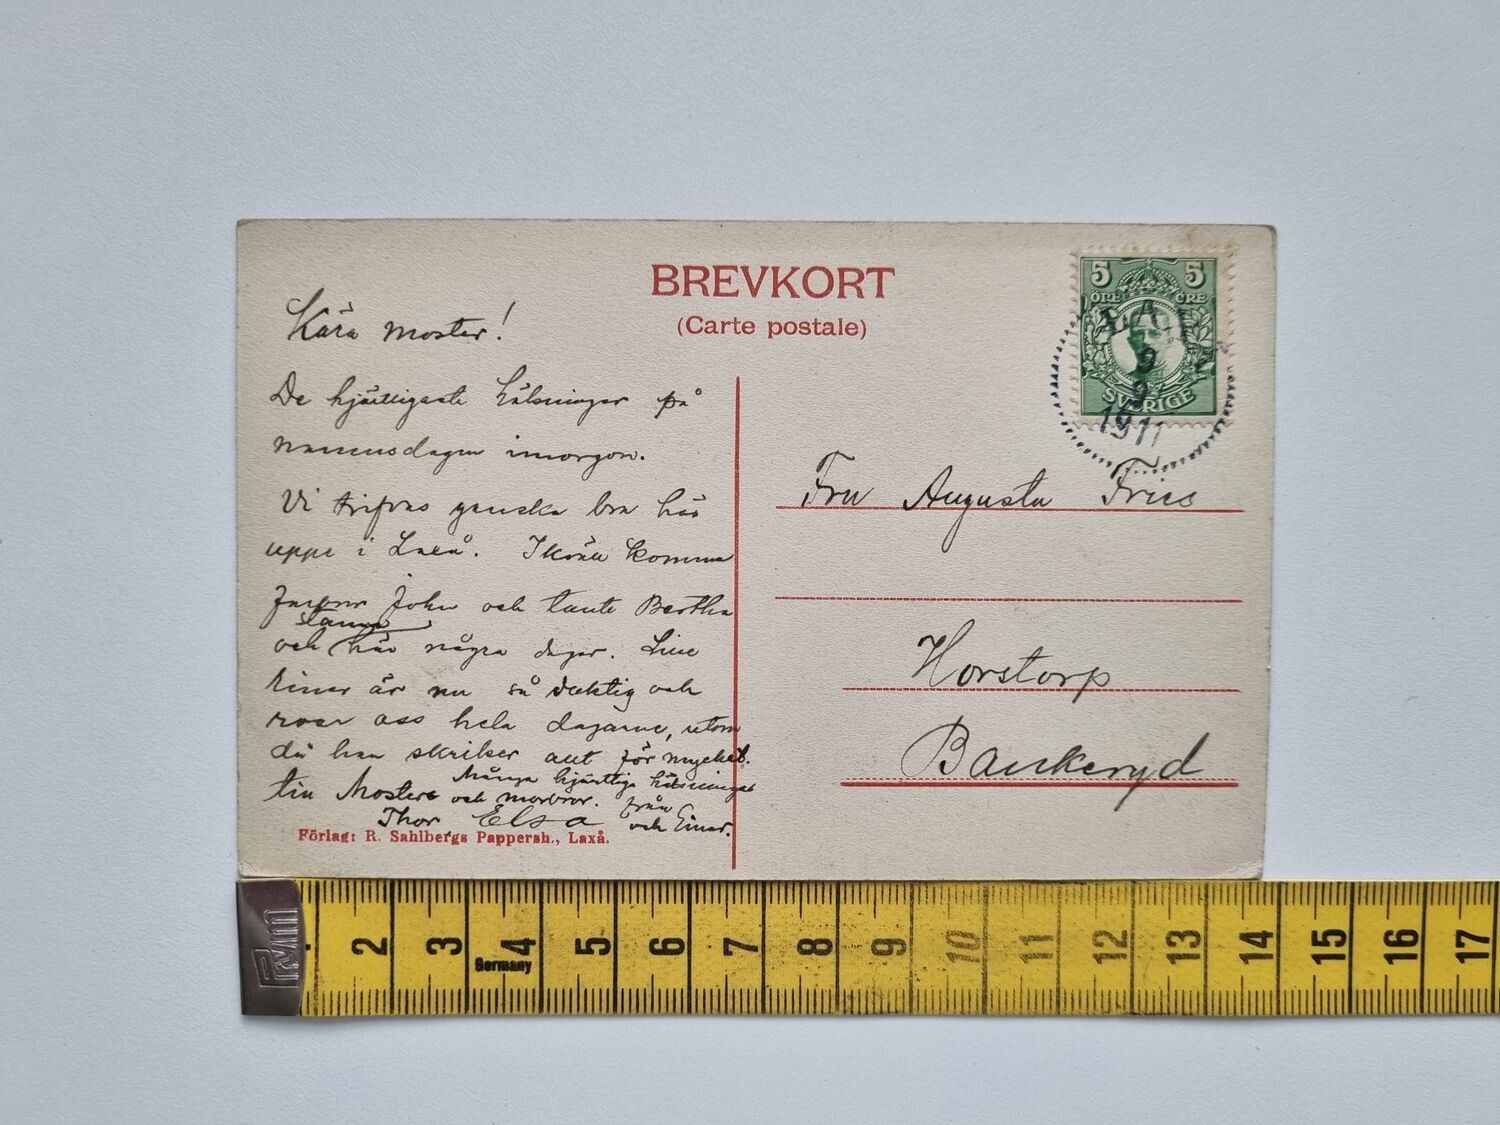 BREVKORT
(Carte postale)
Kära moster!
De hjärtligaste hälsningar på
namnsdagen imorgon.
Vi trifvas ganska bra här
uppe i Laxå. I kväll komma
John och tante Bertha
och stanna här några dagar. Lille
Einar är nu så duktig och
roar oss hela dagarne, utom
då han skriker allt för mycket.
Många hjärtliga hälsningar
till Moster och morbror. från
Thor Elsa och Einar.
Förlag: R. Sahlbergs Pappersh., Laxå.
5 5
ÖRE ÖRE
SVERIGE
LAXÅ
9
9
1911
Fru Augusta Fries
Horstorp
Bankeryd
PRYM
2 3 4 5 6 7 8 9 10 11 12 13 14 15 16 17
Germany